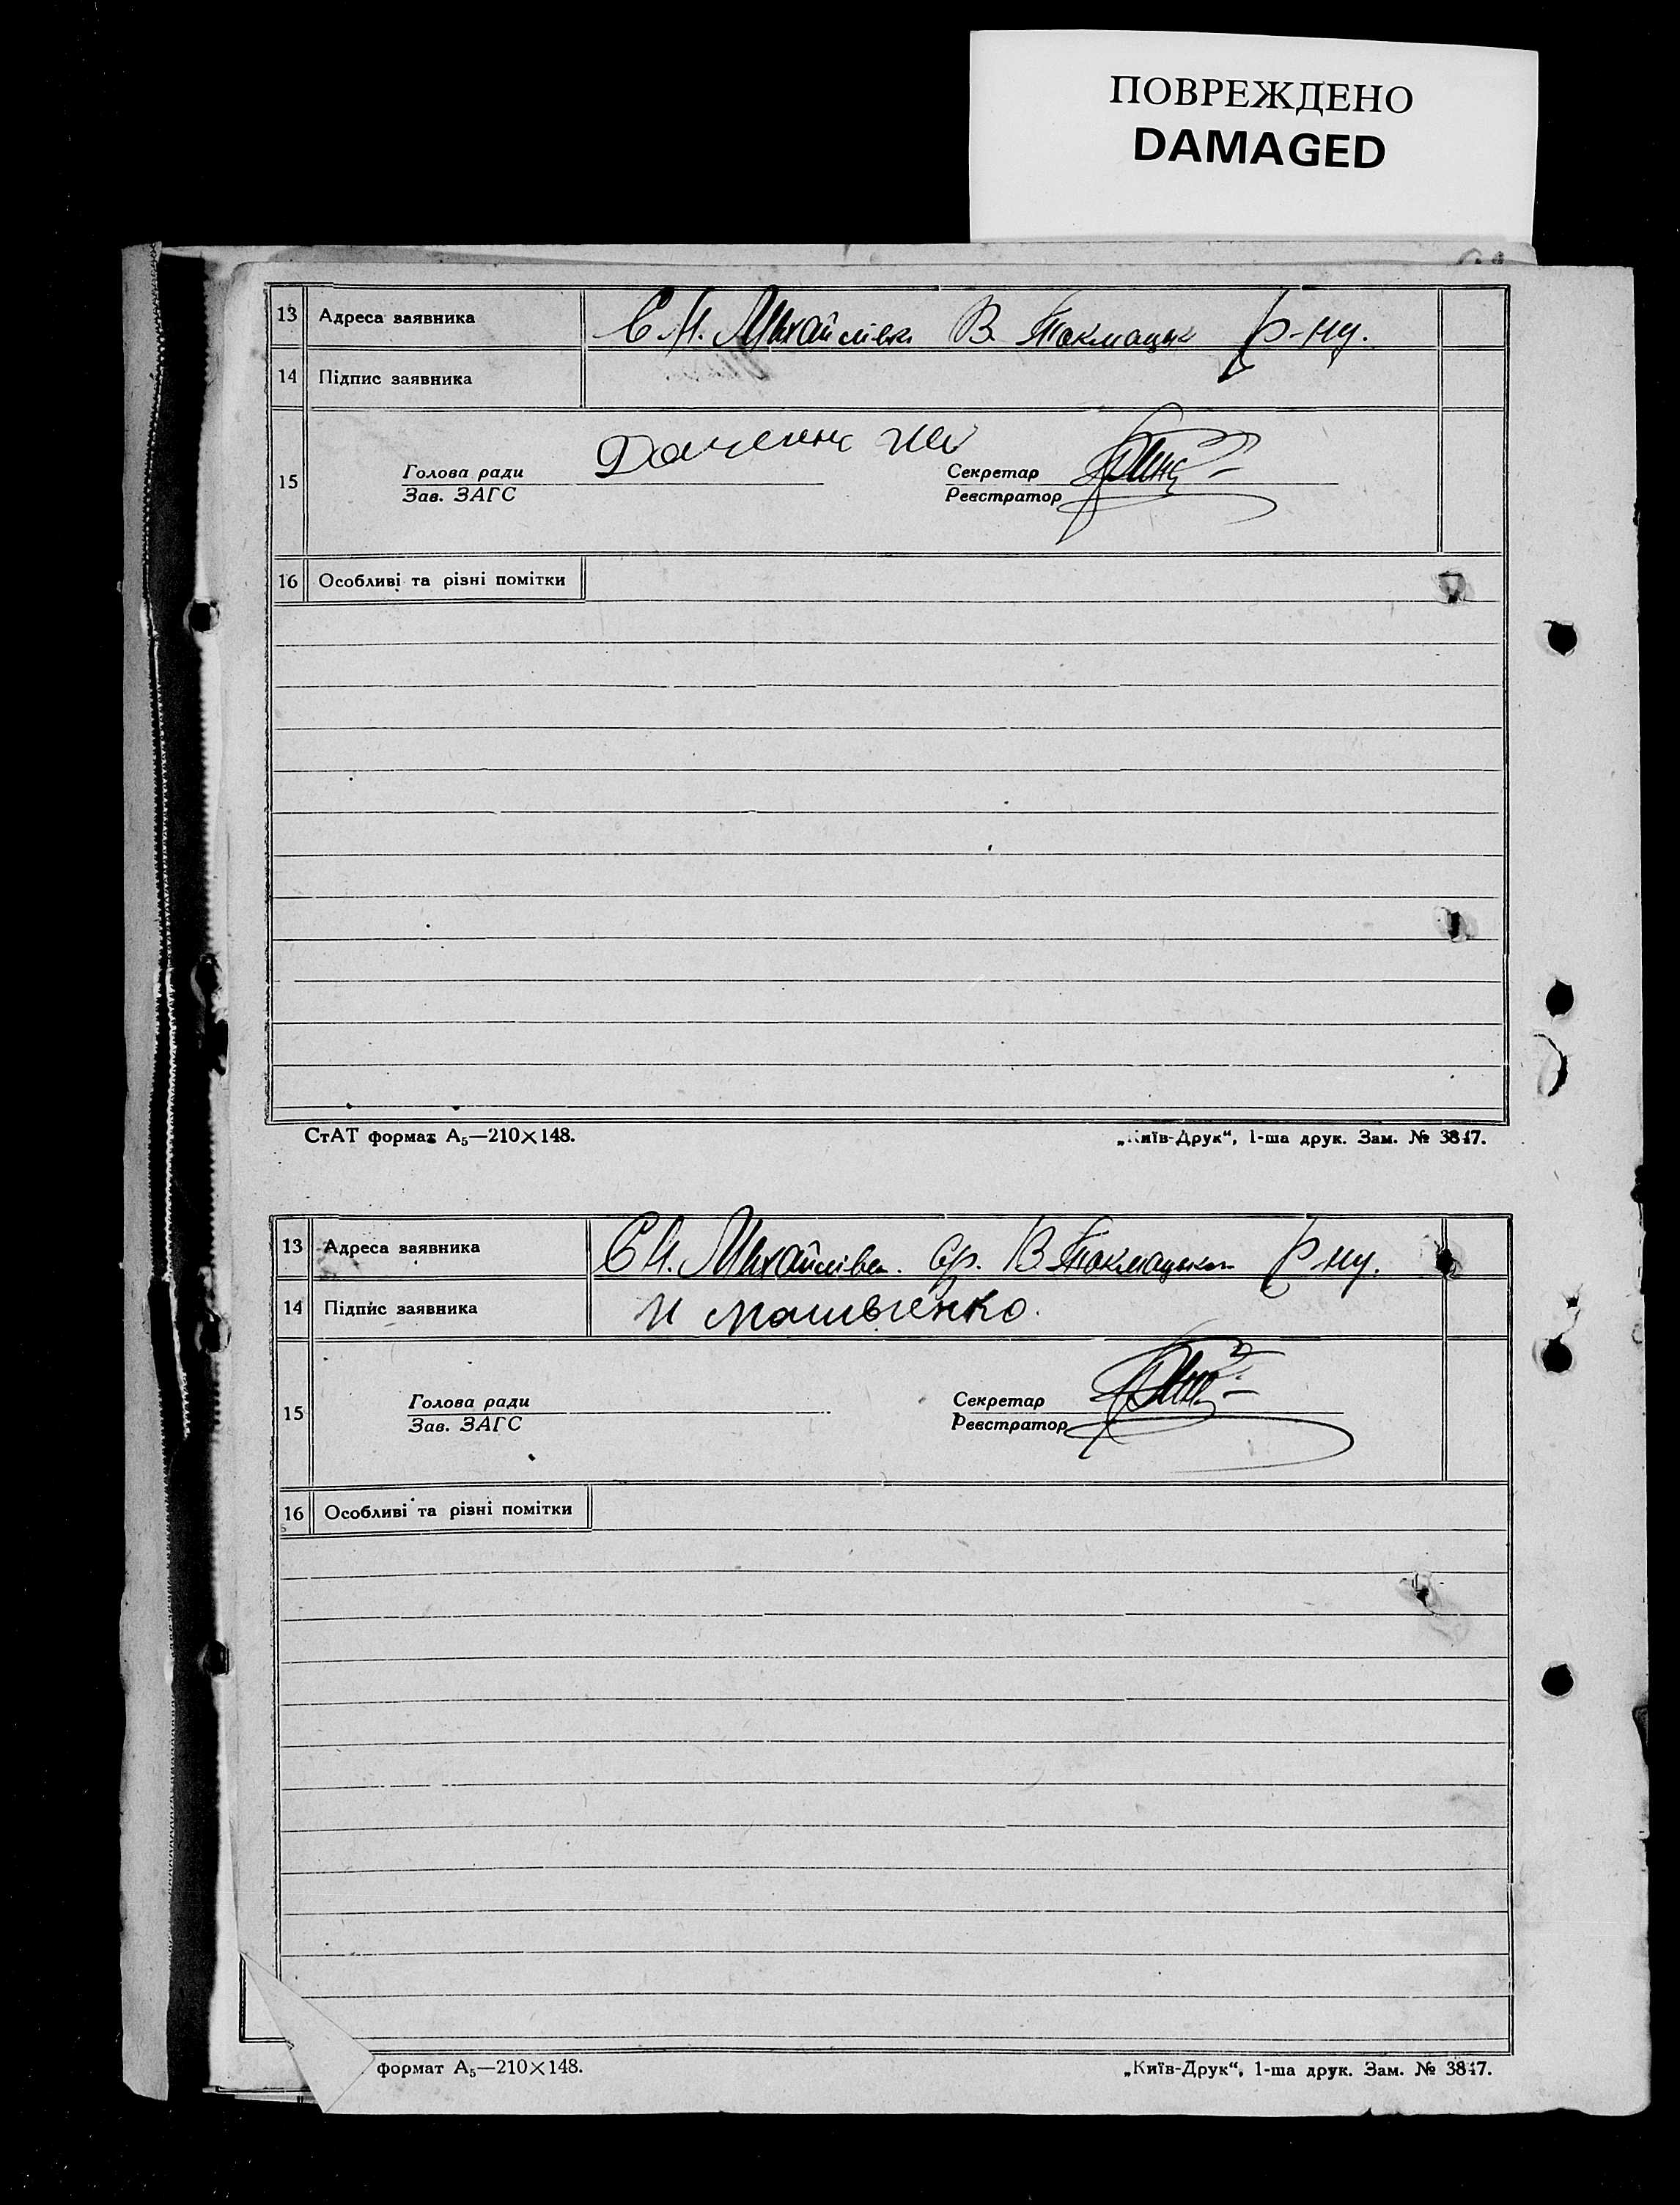 ПОВРЕЖДЕНО
DAMAGED
13 Адреса заявника С Н. Михайлівка В. Токмацьк р-ну.
14 Підпис заявника
15 Голова ради Секретар
Зав. ЗАГС Реєстратор
16 Особливі та різні помітки
СтАТ формат А₅—210×148. „Київ-Друк“, 1-ша друк. Зам. № 3847.
13 Адреса заявника С Н. Михайлівка В Токмацьк р-ну.
14 Підпис заявника
15 Голова ради Секретар
Зав. ЗАГС Реєстратор
16 Особливі та різні помітки
формат А₅—210×148. „Київ-Друк“, 1-ша друк. Зам. № 3847.